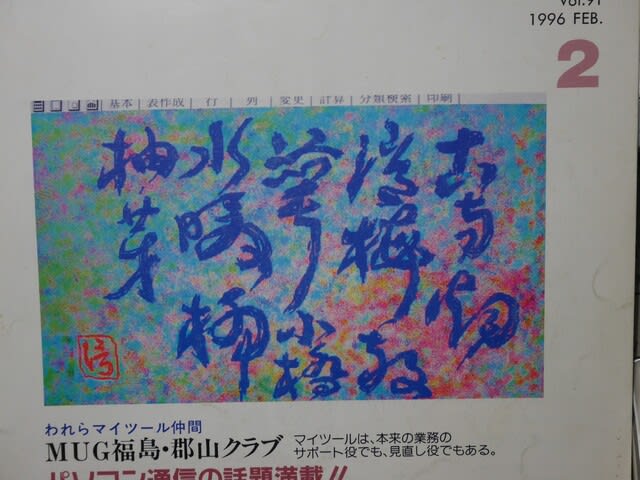 Vol.91
1996 FEB.
2
基本 | 表作成 | 行 | 列 | 変更 | 計算 | 分類検索 | 印刷 |
古寺烟
濃梅散
華小橋
水暖柳
抽芽
われらマイツール仲間
MUG福島・郡山クラブ
マイツールは、本来の業務の
サポート役でも、見直し役でもある。
パソコン通信の話題満載!!